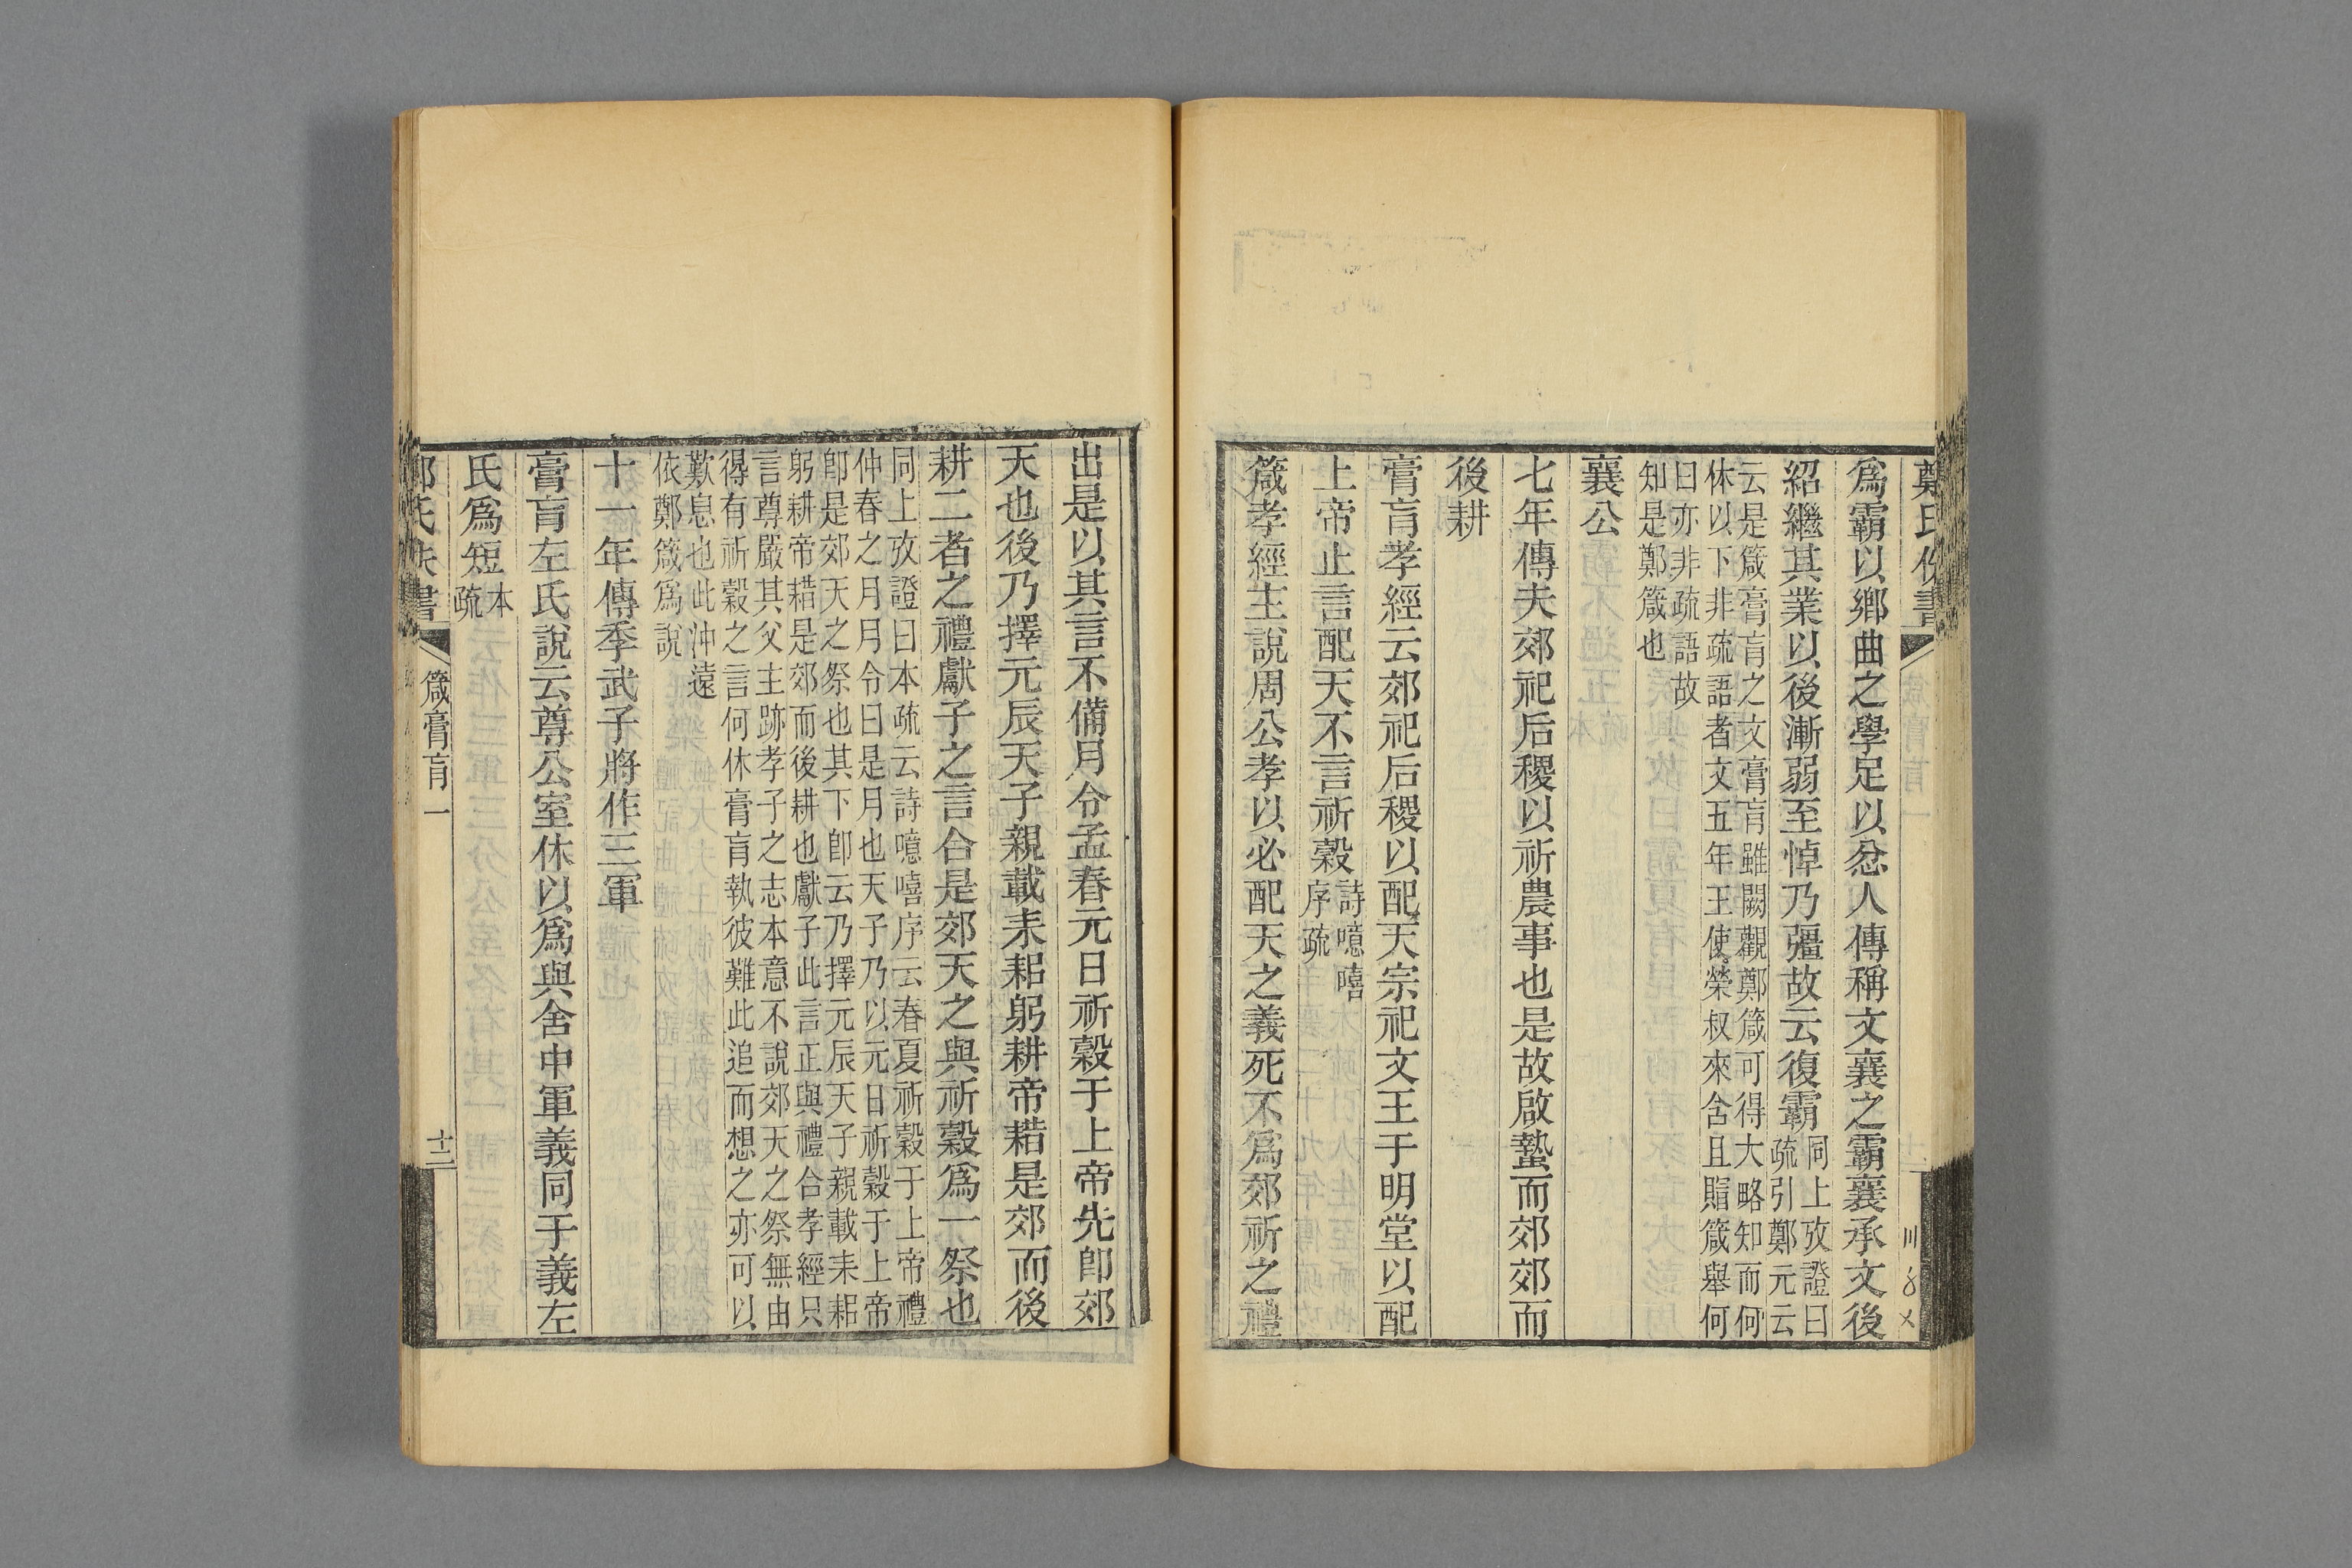 鄭氏佚書
爲霸以鄉曲之學足以忿人傳稱文襄之霸襄承文後
紹繼其業以後漸弱至悼乃彊故云復霸
同上攷證曰
疏引鄭元云
云是箴膏肓之文膏肓雖闕觀鄭箴可得大略知而何
休以下非疏語者文五年王使榮叔來含且賵箴舉何
曰亦非疏語故
知是鄭箴也
襄公
七年傳夫郊祀后稷以祈農事也是故啟蟄而郊郊而
後耕
膏肓孝經云郊祀后稷以配天宗祀文王于明堂以配
上帝止言配天不言祈穀
詩噫嘻
序疏
箴孝經主說周公孝以必配天之義死不爲郊祈之禮
出是以其言不備月令孟春元日祈穀于上帝先卽郊
天也後乃擇元辰天子親載耒耜躬耕帝耤是郊而後
耕二者之禮獻子之言合是郊天之與祈穀爲一祭也
同上攷證曰本疏云詩噫嘻序云春夏祈穀于上帝禮
仲春之月月令曰是月也天子乃以元日祈穀于上帝
卽是郊天之祭也其下卽云乃擇元辰天子親載耒耜
躬耕帝耤是郊而後耕也獻子此言正與禮合孝經只
言尊嚴其父主跡孝子之志本意不說郊天之祭無由
得有祈穀之言何休膏肓執彼難此追而想之亦可以
歎息也此沖遠
依鄭箴爲說
十一年傳季武子將作三軍
膏肓左氏說云尊公室休以爲與舍中軍義同于義左
氏爲短
本
疏
鄭氏佚書
箴膏肓一
十二